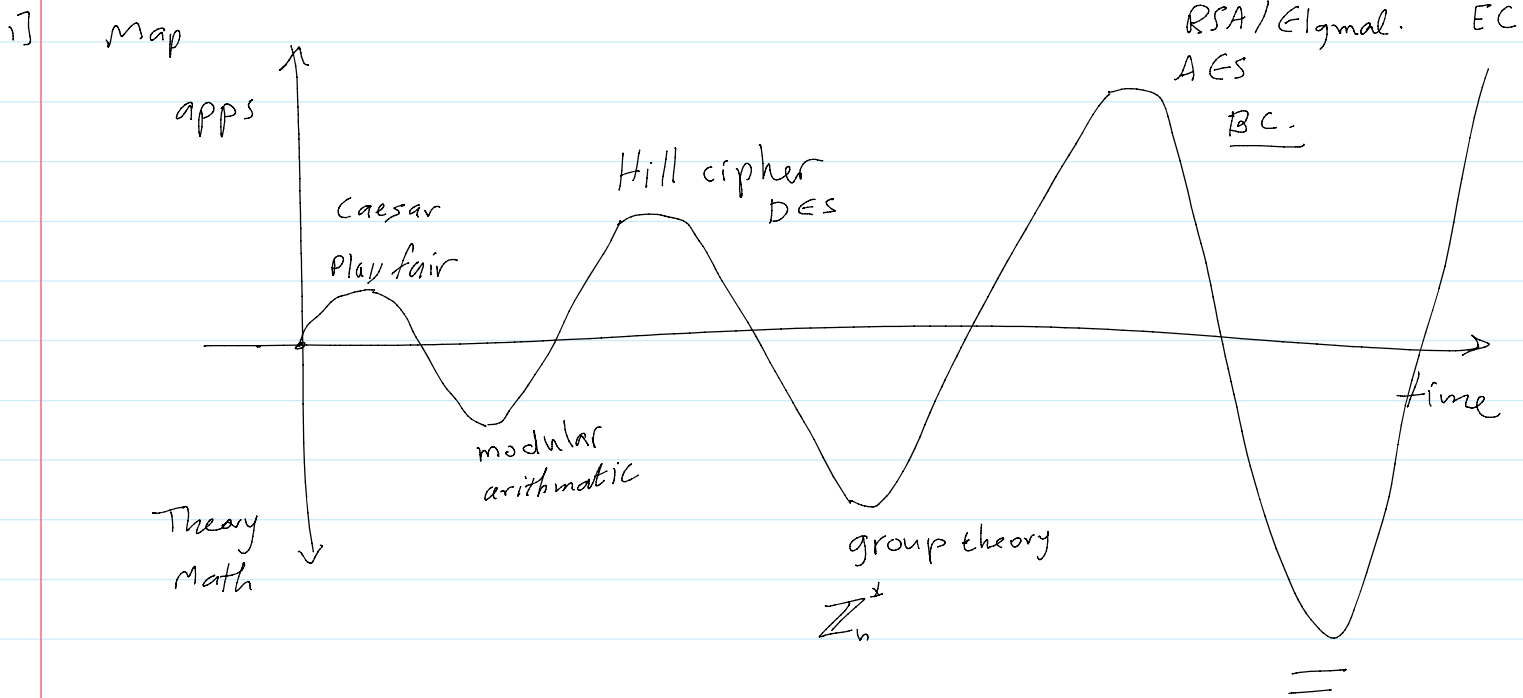 1]
Map
apps
Caesar
Playfair
Hill cipher
DES
RSA/Elgmal.
AES
BC.
EC
time
modular
arithmatic
Theory
Math
group theory
ℤ*n